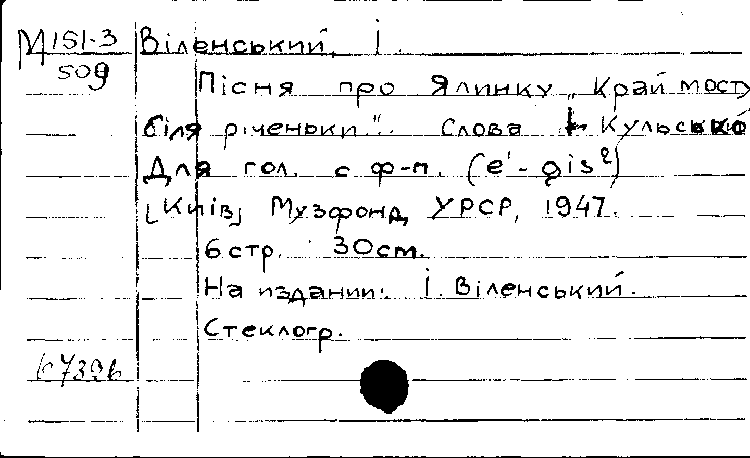 М 151-3 Віленський, І.
509
Пісня про Ялинку „Край мосту
біля річеньки". Слова Кульської
Для гол. с ф-п. (e¹- gis²)
[Київ] Музфонд УРСР, 1947.
6 стр. 30 cm.
На издании: І. Віленський.
Стеклогр.